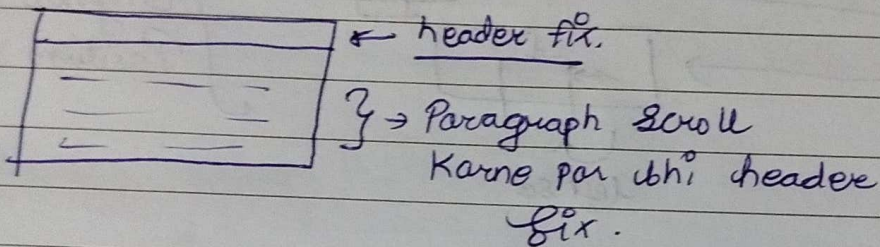 ← header fix.
} → Paragraph scroll
Karne par bhi header
fix.